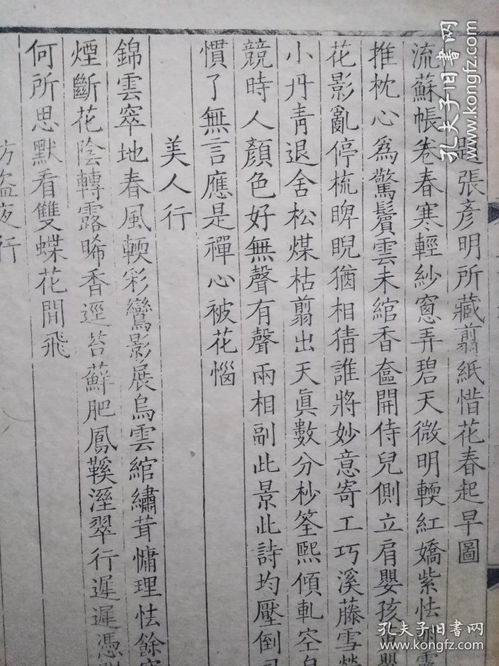 張彥明所藏翦紙惜花春起早圖
流蘇帳卷春寒輕紗窻弄碧天微明輭紅嬌紫怯
推枕心為驚鬢雲未綰香奩開侍兒側立肩嬰孩
花影亂停梳睥睨猶相猜誰將妙意寄工巧溪藤雪
小丹青退舍松煤枯翦出天真數分秒筌熙傾軋空
競時人顏色好無聲有聲兩相副此景此詩均壓倒
慣了無言應是禪心被花惱
美人行
錦雲窣地春風輭彩鸞影展烏雲綰繡茸慵理怯餘
煙斷花陰轉露晞香逕苔蘚肥鳳鞵溼翠行遲遲憑
何所思默看雙蝶花間飛
盜夜行
孔夫子旧书网
www.kongfz.com
孔夫子旧书网
www.kongfz.com